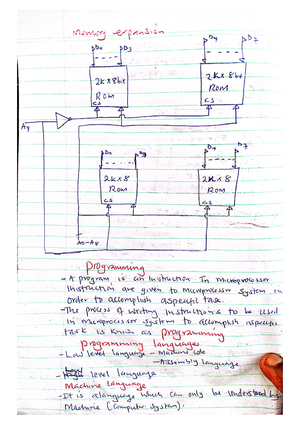 Memory expansion
D0 D3 D4 D7
2K x 8bit
ROM
CS
2K x 8bit
ROM
CS
A9
D0 D3 D4 D7
2K x 8
ROM
CS
2K x 8
ROM
CS
A0-A8
Programming
- A program is an instruction In microprocessor
instruction are given to microprocessor system in
order to accomplish aspecific task.
- The process of writing instructions to be used
in microprocessor system to accomplish aspecific
task is known as programming
Programming languages
- Low level language - Machine code
- Assembly language
level language
Machine language
- It is alanguage which can only be understood by
Machine (Computer System).